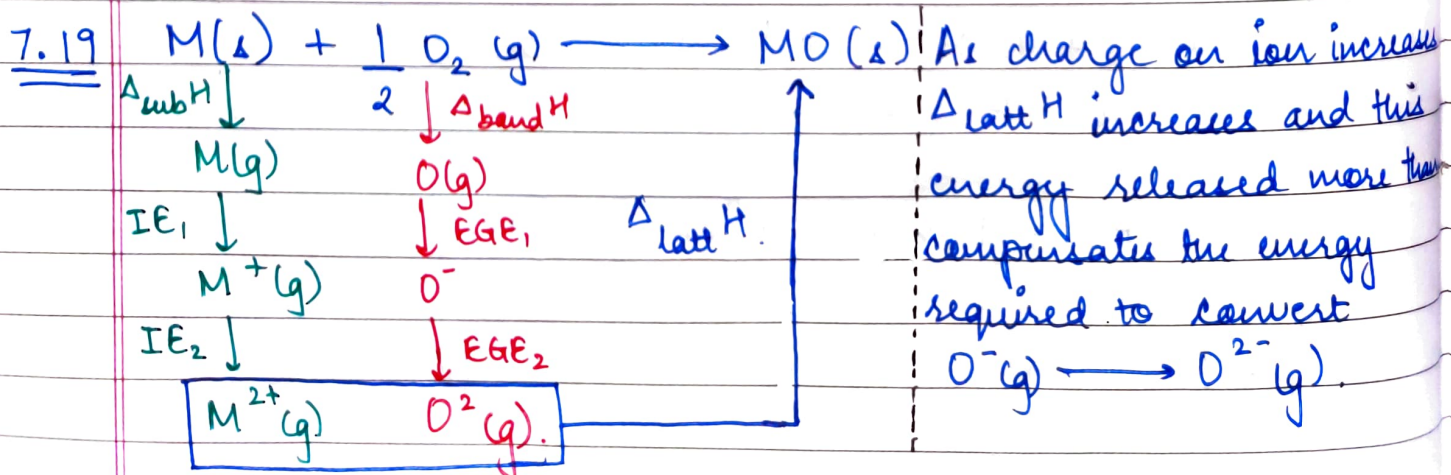 7.19 M(s) + 1/2 O₂ (g) ⟶ MO (s)
Δsub H
Δbond H
M(g)
O(g)
IE₁
EGE₁
Δlatt H.
M⁺(g)
O⁻
IE₂
EGE₂
M²⁺(g)
O²(g).
As charge on ion increases
Δlatt H increases and this
energy released more than
compensates the energy
required to convert
O⁻(g) ⟶ O²⁻(g).